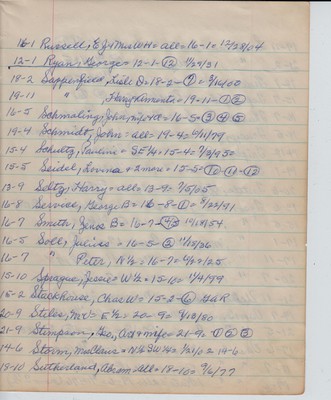 16-1 Russell, E J + Mrs WH = all = 16-1 = 12/28/04
12-1 Ryan, George = 12-1- ⑫ 1/29/31
18-2 Sappenfield, Lisle D = 18-2- ① = 9/16/00
19-11 " Harry + Aminta = 19-11- ① ②
16-5 Schmaling, = 16-5- ③ ④ ⑤
19-4 Schmidt, John = all = 19-4 = 6/11/79
15-4 Schultz, Pauline = SE 1/4 = 15-4 = 7/3/930
15-5 Seidel, Lovina + 2 more = 15-5- ⑩ ⑪ ⑫
13-9 Seltz, Harry = all = 13-9 = 7/5/05
16-8 Service, George B = 16-8- ① = 8/22/91
16-7 Smith, B = 16-7-
16-5 Soll, Julius = 16-5- ② 12/23/36
16-7 " Peter, N 1/2 = 16-7 = 6/2/25
15-10 Sprague, Jessie = W 1/2 = 15-10 = 1/4/99
15-2 Stackhouse, Chas W = 15-2- ⑥ GAR
20-9 Stiles, = E 1/2 = 20-9 = 9/18/80
21-9 Stimpson, Geo, + wife = 21-9- ① ② ③
14-6 Storm, Mrs = N 1/2 SW 1/4 = 3/21/02 14-6
18-10 Sutherland, Abram all = 18-10 = 9/6/77